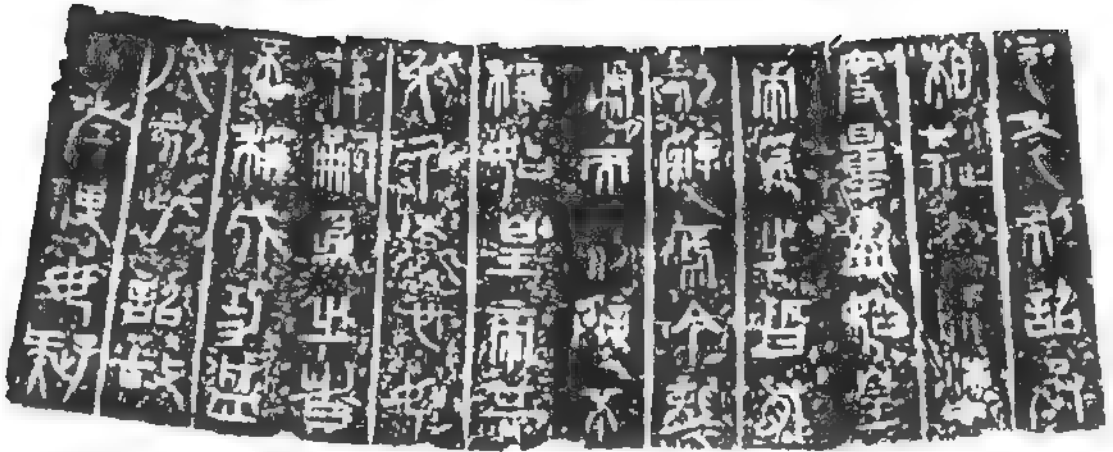 元年制詔丞
相斯去疾法
度量盡始皇
帝為之皆有
刻辭焉今襲
號而刻辭不
稱始皇帝其
於久遠也如
後嗣為之者
不稱成功盛
德刻此詔故
刻左使毋疑